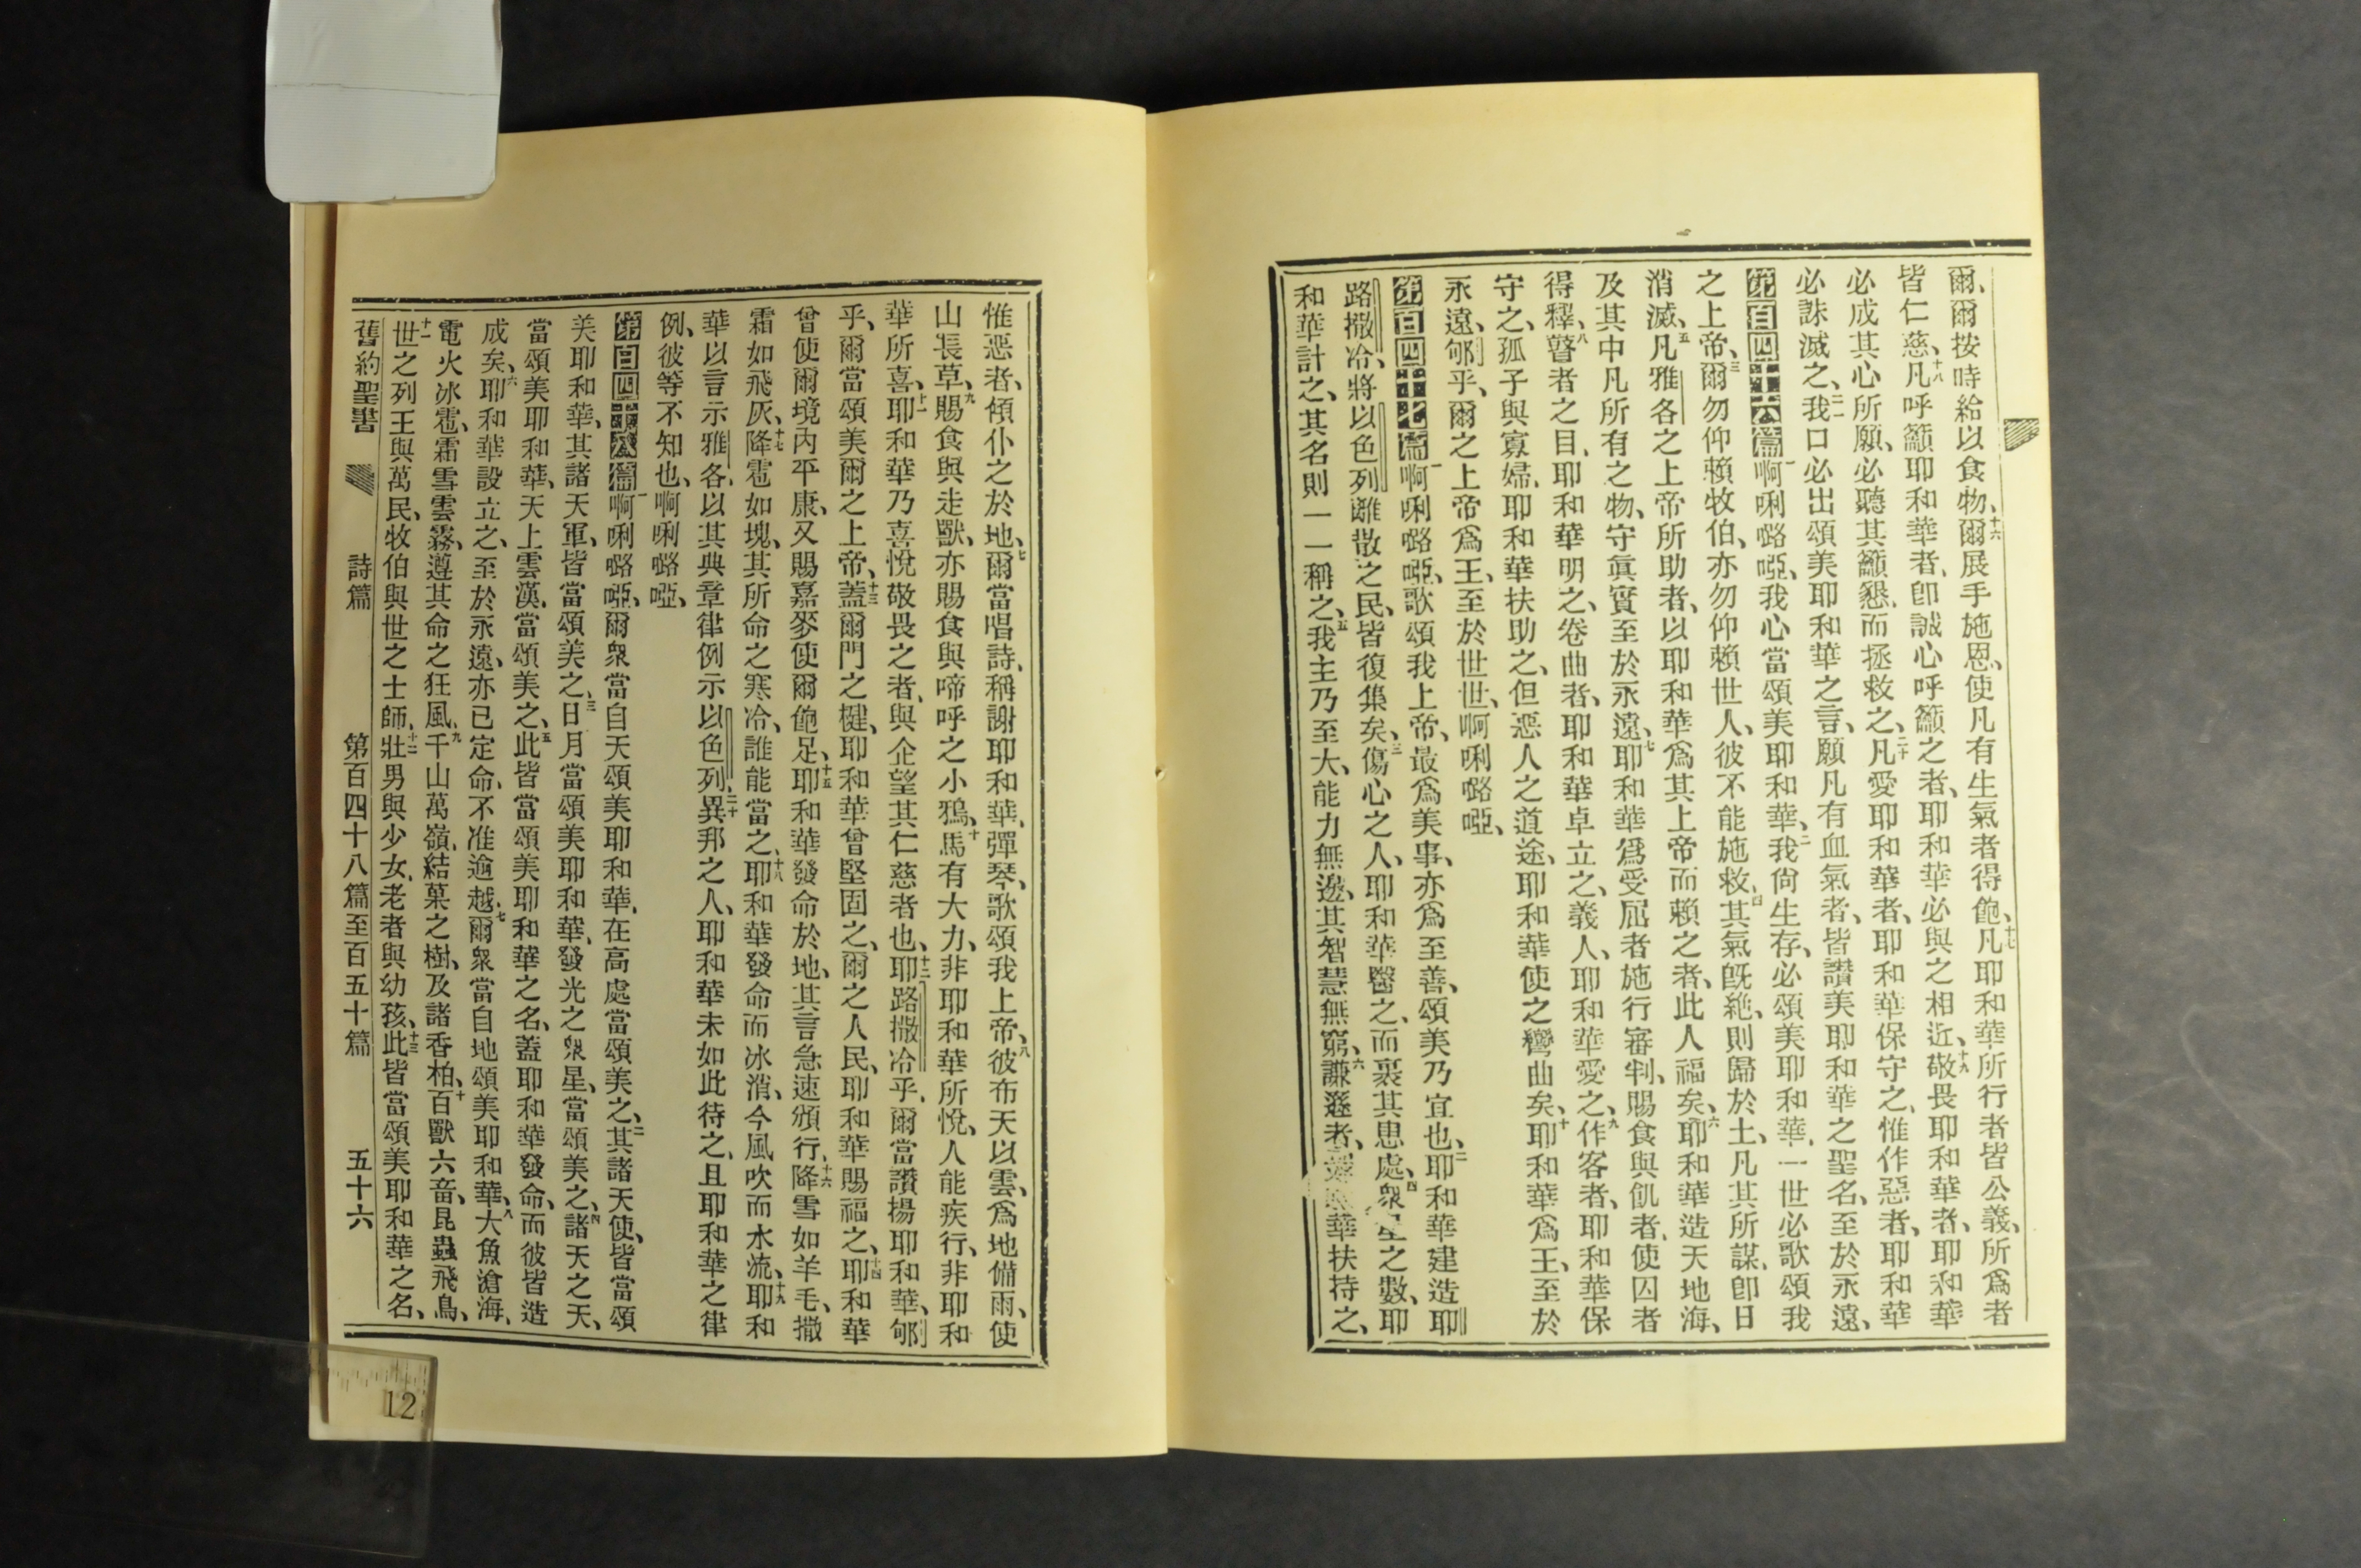 爾、爾按時給以食物、十六爾展手施恩、使凡有生氣者得飽、十七凡耶和華所行者皆公義、所爲者
皆仁慈、十八凡呼籲耶和華者、卽誠心呼籲之者、耶和華必與之相近、十九敬畏耶和華者、耶和華
必成其心所願、必聽其籲懇、而拯救之、二十凡愛耶和華者、耶和華保守之、惟作惡者、耶和華
必誅滅之、二一我口必出頌美耶和華之言、願凡有血氣者、皆讚美耶和華之聖名、至於永遠、
第百四十六篇 一啊唎嚧啞、我心當頌美耶和華、二我尙生存、必頌美耶和華、一世必歌頌我
之上帝、三爾勿仰賴牧伯、亦勿仰賴世人、彼不能施救、四其氣旣絶、則歸於土、凡其所謀、卽日
消滅、五凡雅各之上帝所助者、以耶和華爲其上帝而賴之者、此人福矣、六耶和華造天地海、
及其中凡所有之物、守眞實至於永遠、七耶和華爲受屈者施行審判、賜食與飢者、使囚者
得釋、八瞽者之目、耶和華明之、卷曲者、耶和華卓立之、義人、耶和華愛之、九作客者、耶和華保
守之、孤子與寡婦、耶和華扶助之、但惡人之道途、耶和華使之彎曲矣、十耶和華爲王、至於
永遠、郇乎、爾之上帝爲王、至於世世、啊唎嚧啞、
第百四十七篇 一啊唎嚧啞、歌頌我上帝、最爲美事、亦爲至善、頌美乃宜也、二耶和華建造耶
路撒冷、將以色列離散之民、皆復集矣、三傷心之人、耶和華醫之、而裹其患處、四衆星之數、耶
和華計之、其名則一一稱之、五我主乃至大、能力無邊、其智慧無窮、六謙遜者、華扶持之、
惟惡者、傾仆之於地、七爾當唱詩、稱謝耶和華、彈琴、歌頌我上帝、八彼布天以雲、爲地備雨、使
山長草、九賜食與走獸、亦賜食與啼呼之小鴉、十馬有大力、非耶和華所悅、人能疾行、非耶和
華所喜、十一耶和華乃喜悅敬畏之者、與企望其仁慈者也、十二耶路撒冷乎、爾當讚揚耶和華、郇
乎、爾當頌美爾之上帝、十三蓋爾門之楗、耶和華曾堅固之、爾之人民、耶和華賜福之、十四耶和華
曾使爾境內平康、又賜嘉麥使爾飽足、十五耶和華發命於地、其言急速頒行、十六降雪如羊毛、撒
霜如飛灰、十七降雹如塊、其所命之寒冷、誰能當之、十八耶和華發命而冰消、令風吹而水流、十九耶和
華以言示雅各、以其典章律例示以色列、二十異邦之人、耶和華未如此待之、且耶和華之律
例、彼等不知也、啊唎嚧啞、
第百四十八篇 一啊唎嚧啞、爾衆當自天頌美耶和華、在高處當頌美之、二其諸天使、皆當頌
美耶和華、其諸天軍、皆當頌美之、三日月當頌美耶和華、發光之衆星、當頌美之、四諸天之天、
當頌美耶和華、天上雲漢、當頌美之、五此皆當頌美耶和華之名、蓋耶和華發命、而彼皆造
成矣、六耶和華設立之、至於永遠、亦已定命、不准逾越、七爾衆當自地頌美耶和華、八大魚滄海、
電火冰雹、霜雪雲霧、遵其命之狂風、九千山萬嶺、結菓之樹、及諸香柏、十百獸六畜、昆蟲飛鳥、
十一世之列王與萬民、牧伯與世之士師、十二壯男與少女、老者與幼孩、十三此皆當頌美耶和華之名、
舊約聖書 詩篇 第百四十八篇至百五十篇 五十六
12